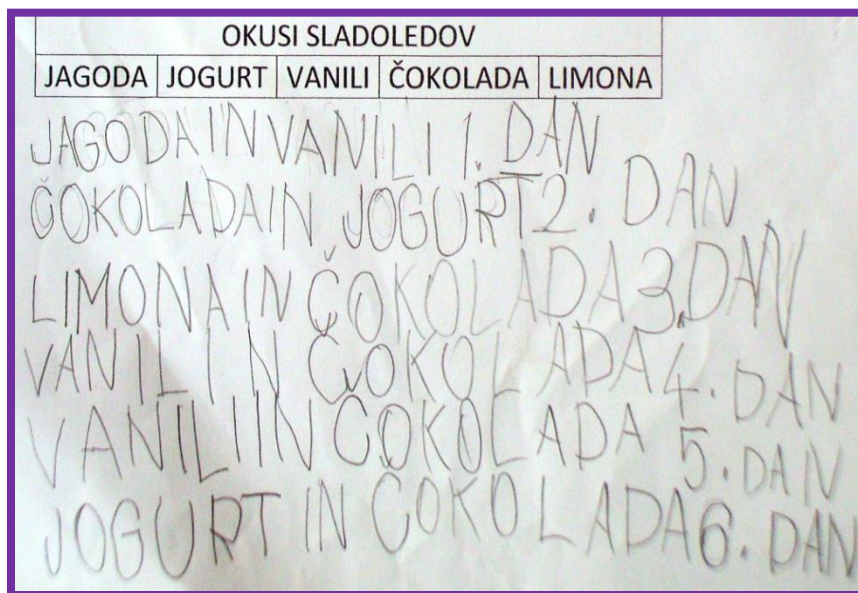 OKUSI SLADOLEDOV
JAGODA JOGURT VANILI ČOKOLADA LIMONA
JAGODA IN VANILI 1. DAN
ČOKOLADA IN JOGURT 2. DAN
LIMONA IN ČOKOLADA 3. DAN
VANIL IN ČOKOLADA 4. DAN
VANILI IN ČOKOLADA 5. DAN
JOGURT IN ČOKOLADA 6. DAN